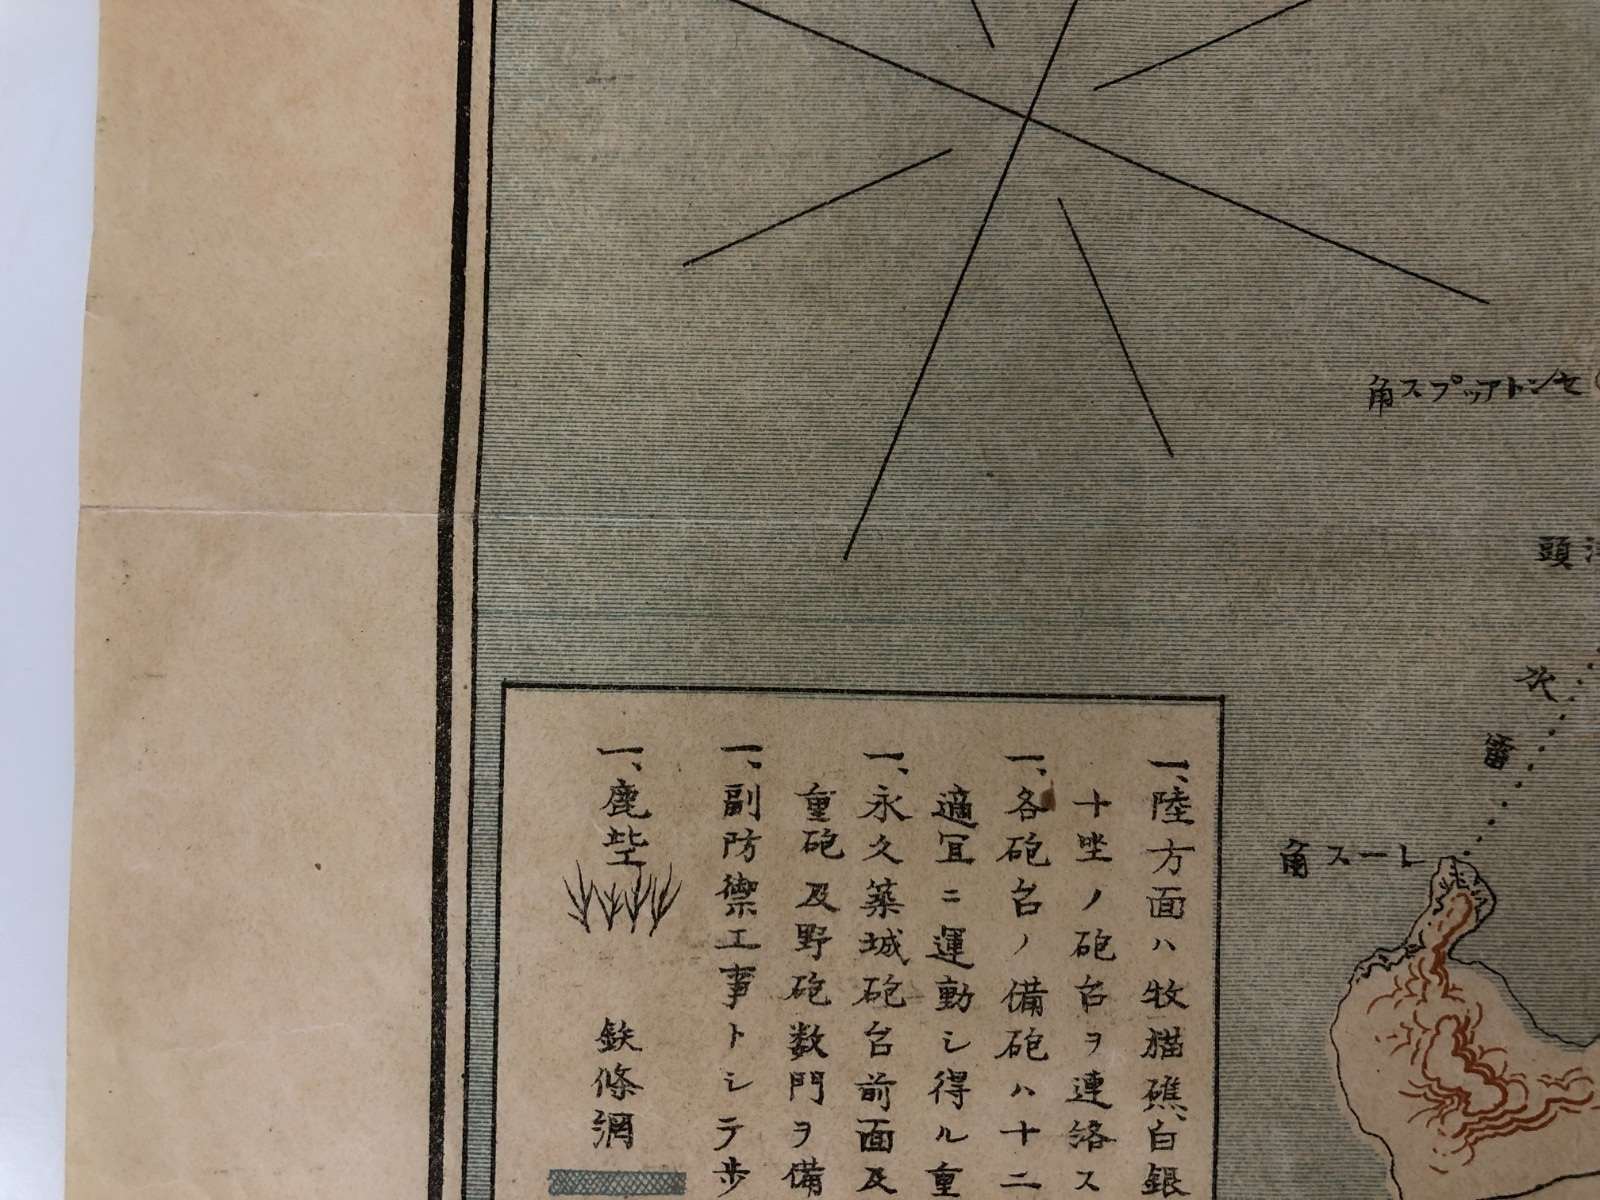 角スプッアトンセ
頭
次
雷
角スール
一、陸方面ハ牧猫礁、白銀
十坐ノ砲台ヲ連絡ス
一、各砲台ノ備砲ハ十二
適宜ニ運動シ得ル重
一、永久築城砲台前面及
重砲及野砲数門ヲ備
一、副防禦工事トシテ歩
一、鹿柴
鉄條網